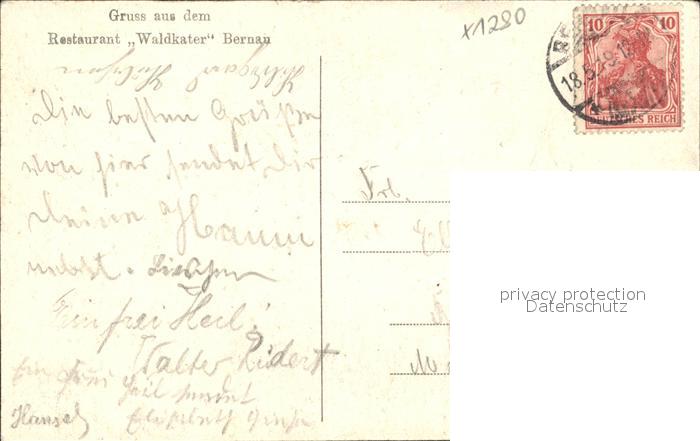 Gruss aus dem
Restaurant „Waldkater“ Bernau
x1280
10 10
DEUTSCHES REICH
18.5
Die besten Grüße
von hier sendet Dir
Deine Hanni
nebst Lieschen
Frl.
Ein frei Heil!
Walter
Ein frei Heil sendet
Elisabeth
Hansel
privacy protection
Datenschutz